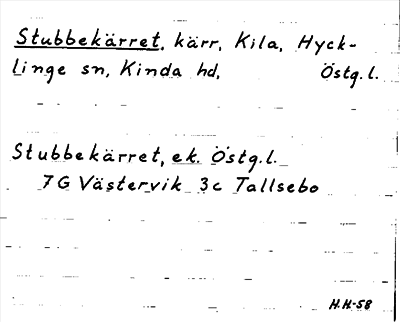 Stubbekärret, kärr, Kila, Hyck-
linge sn, Kinda hd, Östg.l.
Stubbekärret, ek. Östg.l.
7G Västervik 3c Tallsebo
H.H-58